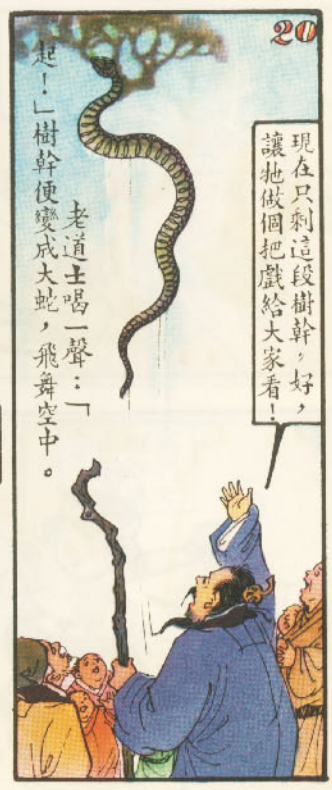 20
現在只剩這段樹幹,好,
讓牠做個把戲給大家看!
老道士喝一聲:「
起!」樹幹便變成大蛇,飛舞空中。